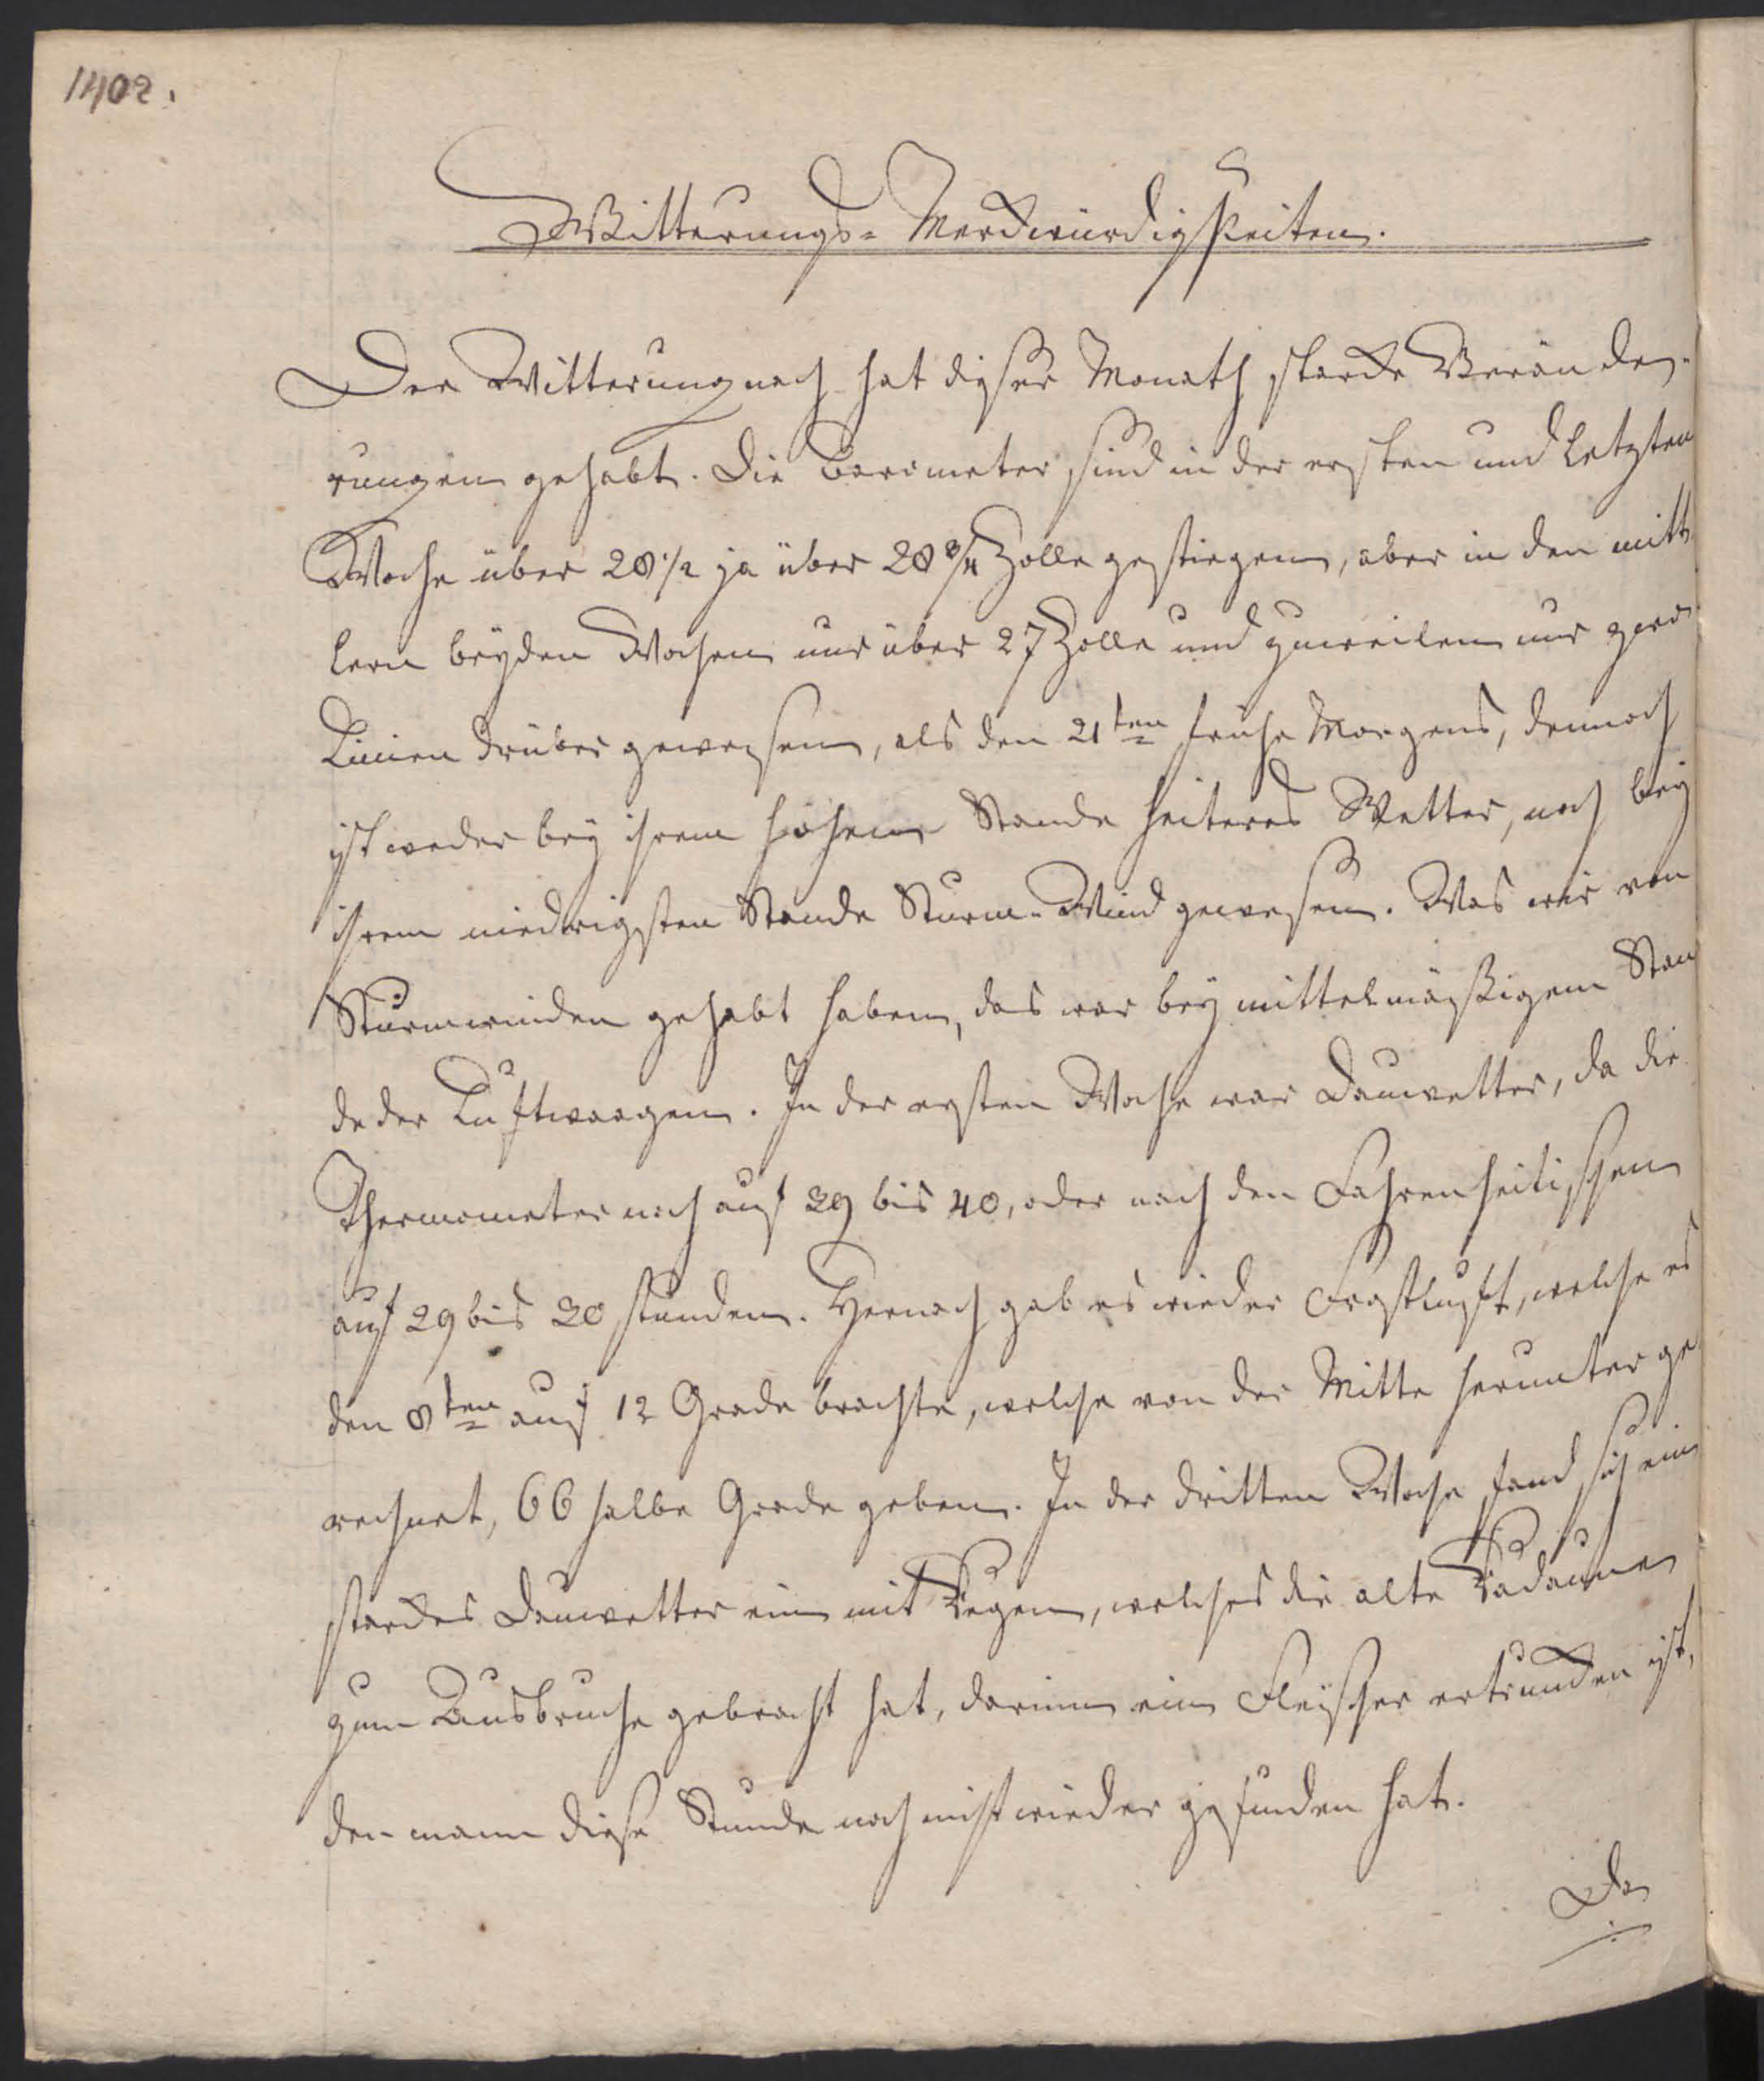 1402.
Witterungs-Merckwürdigkeiten.
Der Witterung nach hat dieser Monath starcke Verände-
rungen gehabt. Die Barometer sind in der ersten und letzten
Woche über 28 1/2 ja über 28 3/4 Zolle gestiegen, aber in den mitt-
lern beyden Wochen nur über 27 Zolle und zuweilen nur zwo
Linien drüber gewesen, als den 21ten frühe Morgens, dennoch
ist weder bey ihrem hohem Stande heiteres Wetter, noch bey
ihrem niedrigsten Stande Sturm-Wind gewesen. Was wir von
Sturmwinden gehabt haben, das war bey mittelmäßigem Stan
de der Luftwaagen. In der ersten Woche war Dauwetter, da die
Thermometer noch auf 39 bis 40, oder nach den Fahrenheitischen
auf 29 bis 30 stunden. Hernach gab es wieder Frostluft, welche es
den 8ten auf 12 Grade brachte, welche von der Mitte herunter ge
rechnet, 66 halbe Grade geben. In der dritten Woche fand sich ein
starckes Dauwetter ein mit Regen, welches die alte Radaune
zum Ausbruche gebracht hat, darinnen ein Fleischer ertruncken ist,
den mann diese Stunde noch nicht wieder gefunden hat.
Da